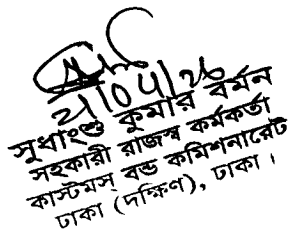 সুধাংশু কুমার বর্মন
সহকারী রাজস্ব কর্মকর্তা
কাস্টমস্ বন্ড কমিশনারেট
ঢাকা (দক্ষিণ), ঢাকা ।